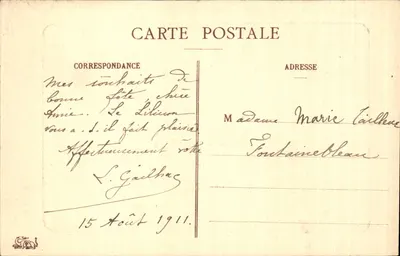 CARTE POSTALE
CORRESPONDANCE
ADRESSE
Mes souhaits de
bonne fête chère
Amie. Le
vous a-t-il fait plaisir
Affectueusement vôtre
L. Gailhac
15 Août 1911.
Madame Marie
Fontainebleau